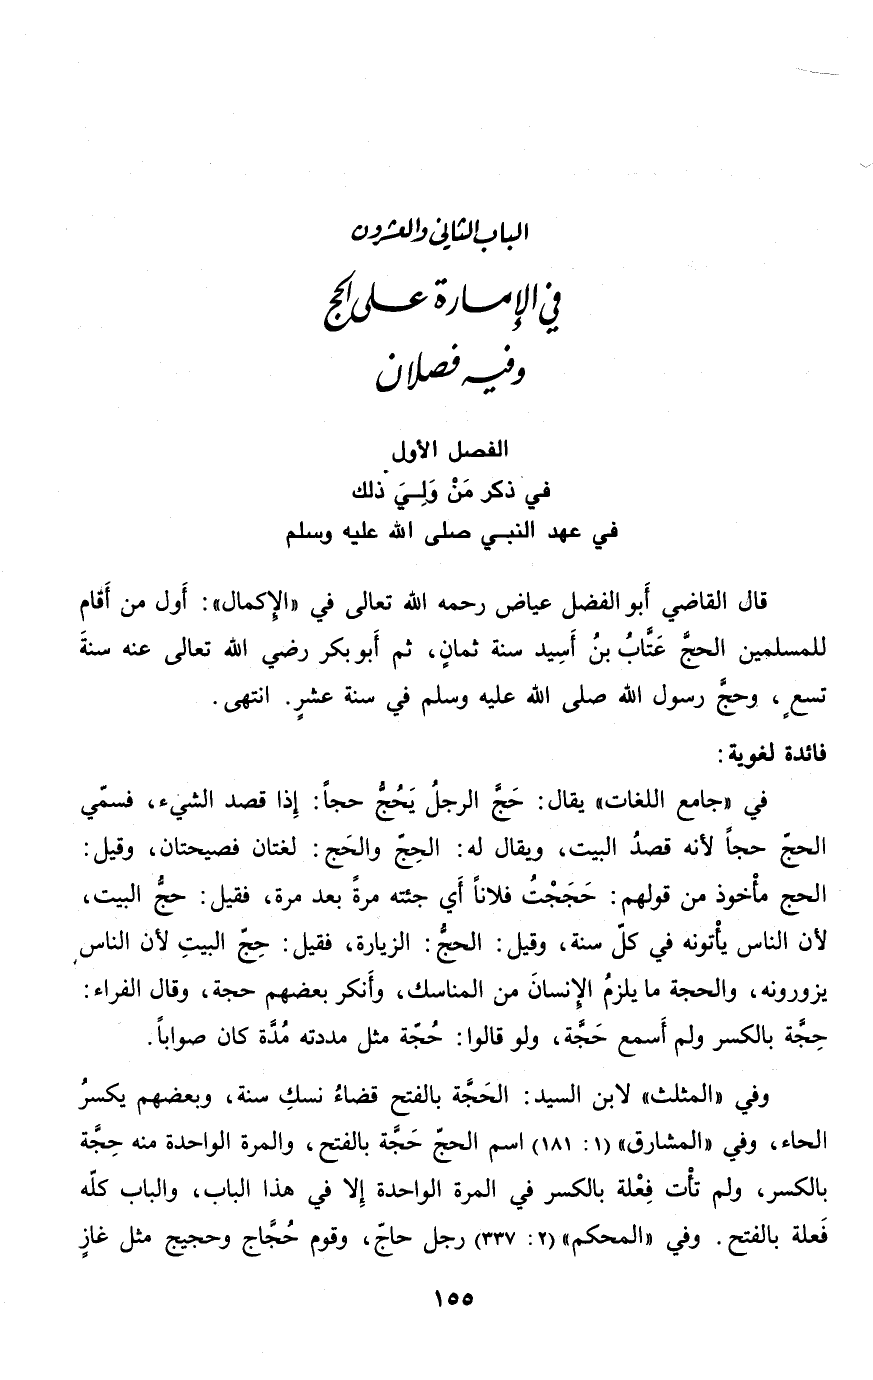 الباب الثاني والعشرون
في الإمارة على الحج
وفيه فصلان
الفصل الأول
في ذكر مَنْ وَلِيَ ذلك
في عهد النبي صلى الله عليه وسلم
قال القاضي أَبو الفضل عياض رحمه الله تعالى في «الإِكمال»: أَول من أَقام
للمسلمين الحجَّ عَتَّابُ بنُ أَسِيد سنة ثمانٍ، ثم أَبو بكر رضي الله تعالى عنه سنةَ
تسعٍ، وحجَّ رسول الله صلى الله عليه وسلم في سنة عشرٍ. انتهى.
فائدة لغوية:
في «جامع اللغات» يقال: حَجَّ الرجلُ يَحُجُّ حجاً: إِذا قصد الشيء، فسمّي
الحجّ حجاً لأنه قصدُ البيت، ويقال له: الحِجّ والحَج: لغتان فصيحتان، وقيل:
الحج مأْخوذ من قولهم: حَجَجْتُ فلاناً أَي جئته مرةً بعد مرة، فقيل: حجُّ البيت،
لأن الناس يأْتونه في كلّ سنة، وقيل: الحجُّ: الزيارة، فقيل: حِجّ البيتِ لأن الناس
يزورونه، والحجة ما يلزمُ الإِنسانَ من المناسك، وأَنكر بعضهم حجة، وقال الفراء:
حِجَّة بالكسر ولم أَسمع حَجَّة، ولو قالوا: حُجّة مثل مددته مُدَّة كان صواباً.
وفي «المثلث» لابن السيد: الحَجَّة بالفتح قضاءُ نسكِ سنة، وبعضهم يكسرُ
الحاء، وفي «المشارق» (١: ١٨١) اسم الحجّ حَجَّة بالفتح، والمرة الواحدة منه حِجَّة
بالكسر، ولم تأْت فِعْلة بالكسر في المرة الواحدة إِلا في هذا الباب، والباب كلّه
فَعلة بالفتح. وفي «المحكم» (٢: ٣٣٧) رجل حاجّ، وقوم حُجَّاج وحجيج مثل غازٍ
١٥٥